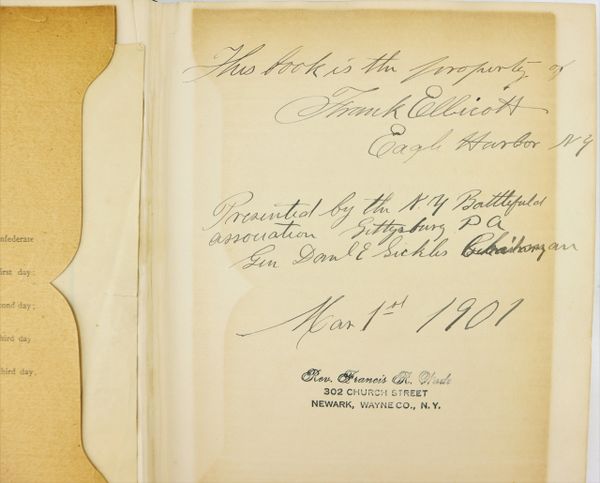 nfederate
irst day;
ond day;
hird day
hird day.
This book is the property of
Frank Ellicott
Eagle Harbor N Y
Presented by the N.Y Battlefield
association Gettysburg P A
Gen Danl E Sickles Chairman
Mar 1st 1901
Rev. Francis R. Wade
302 CHURCH STREET
NEWARK, WAYNE CO., N. Y.